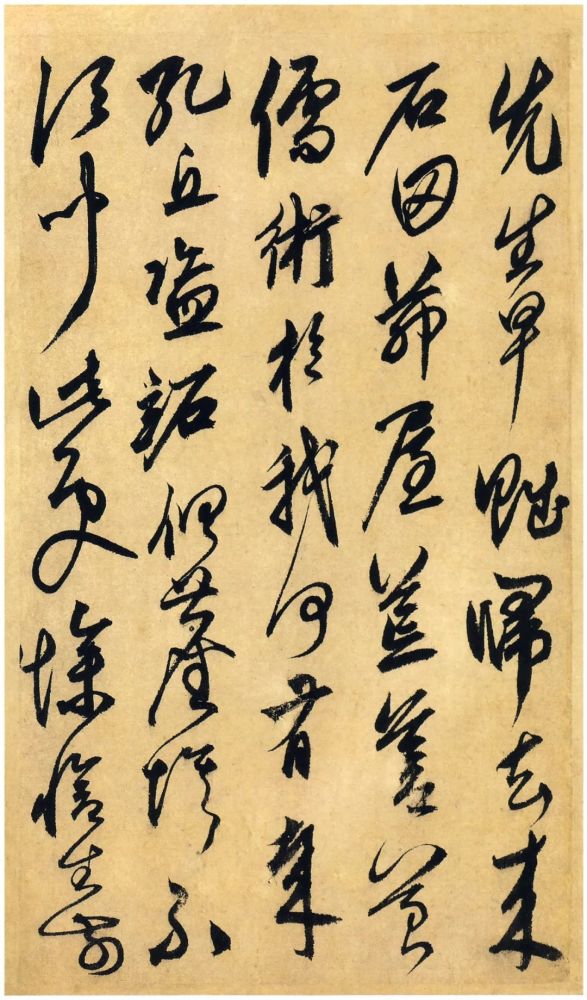 先生早賦歸去來
石田茅屋荒蒼苔
儒術於我何有哉
孔丘盜跖俱塵埃不
須聞此更慘愴生前